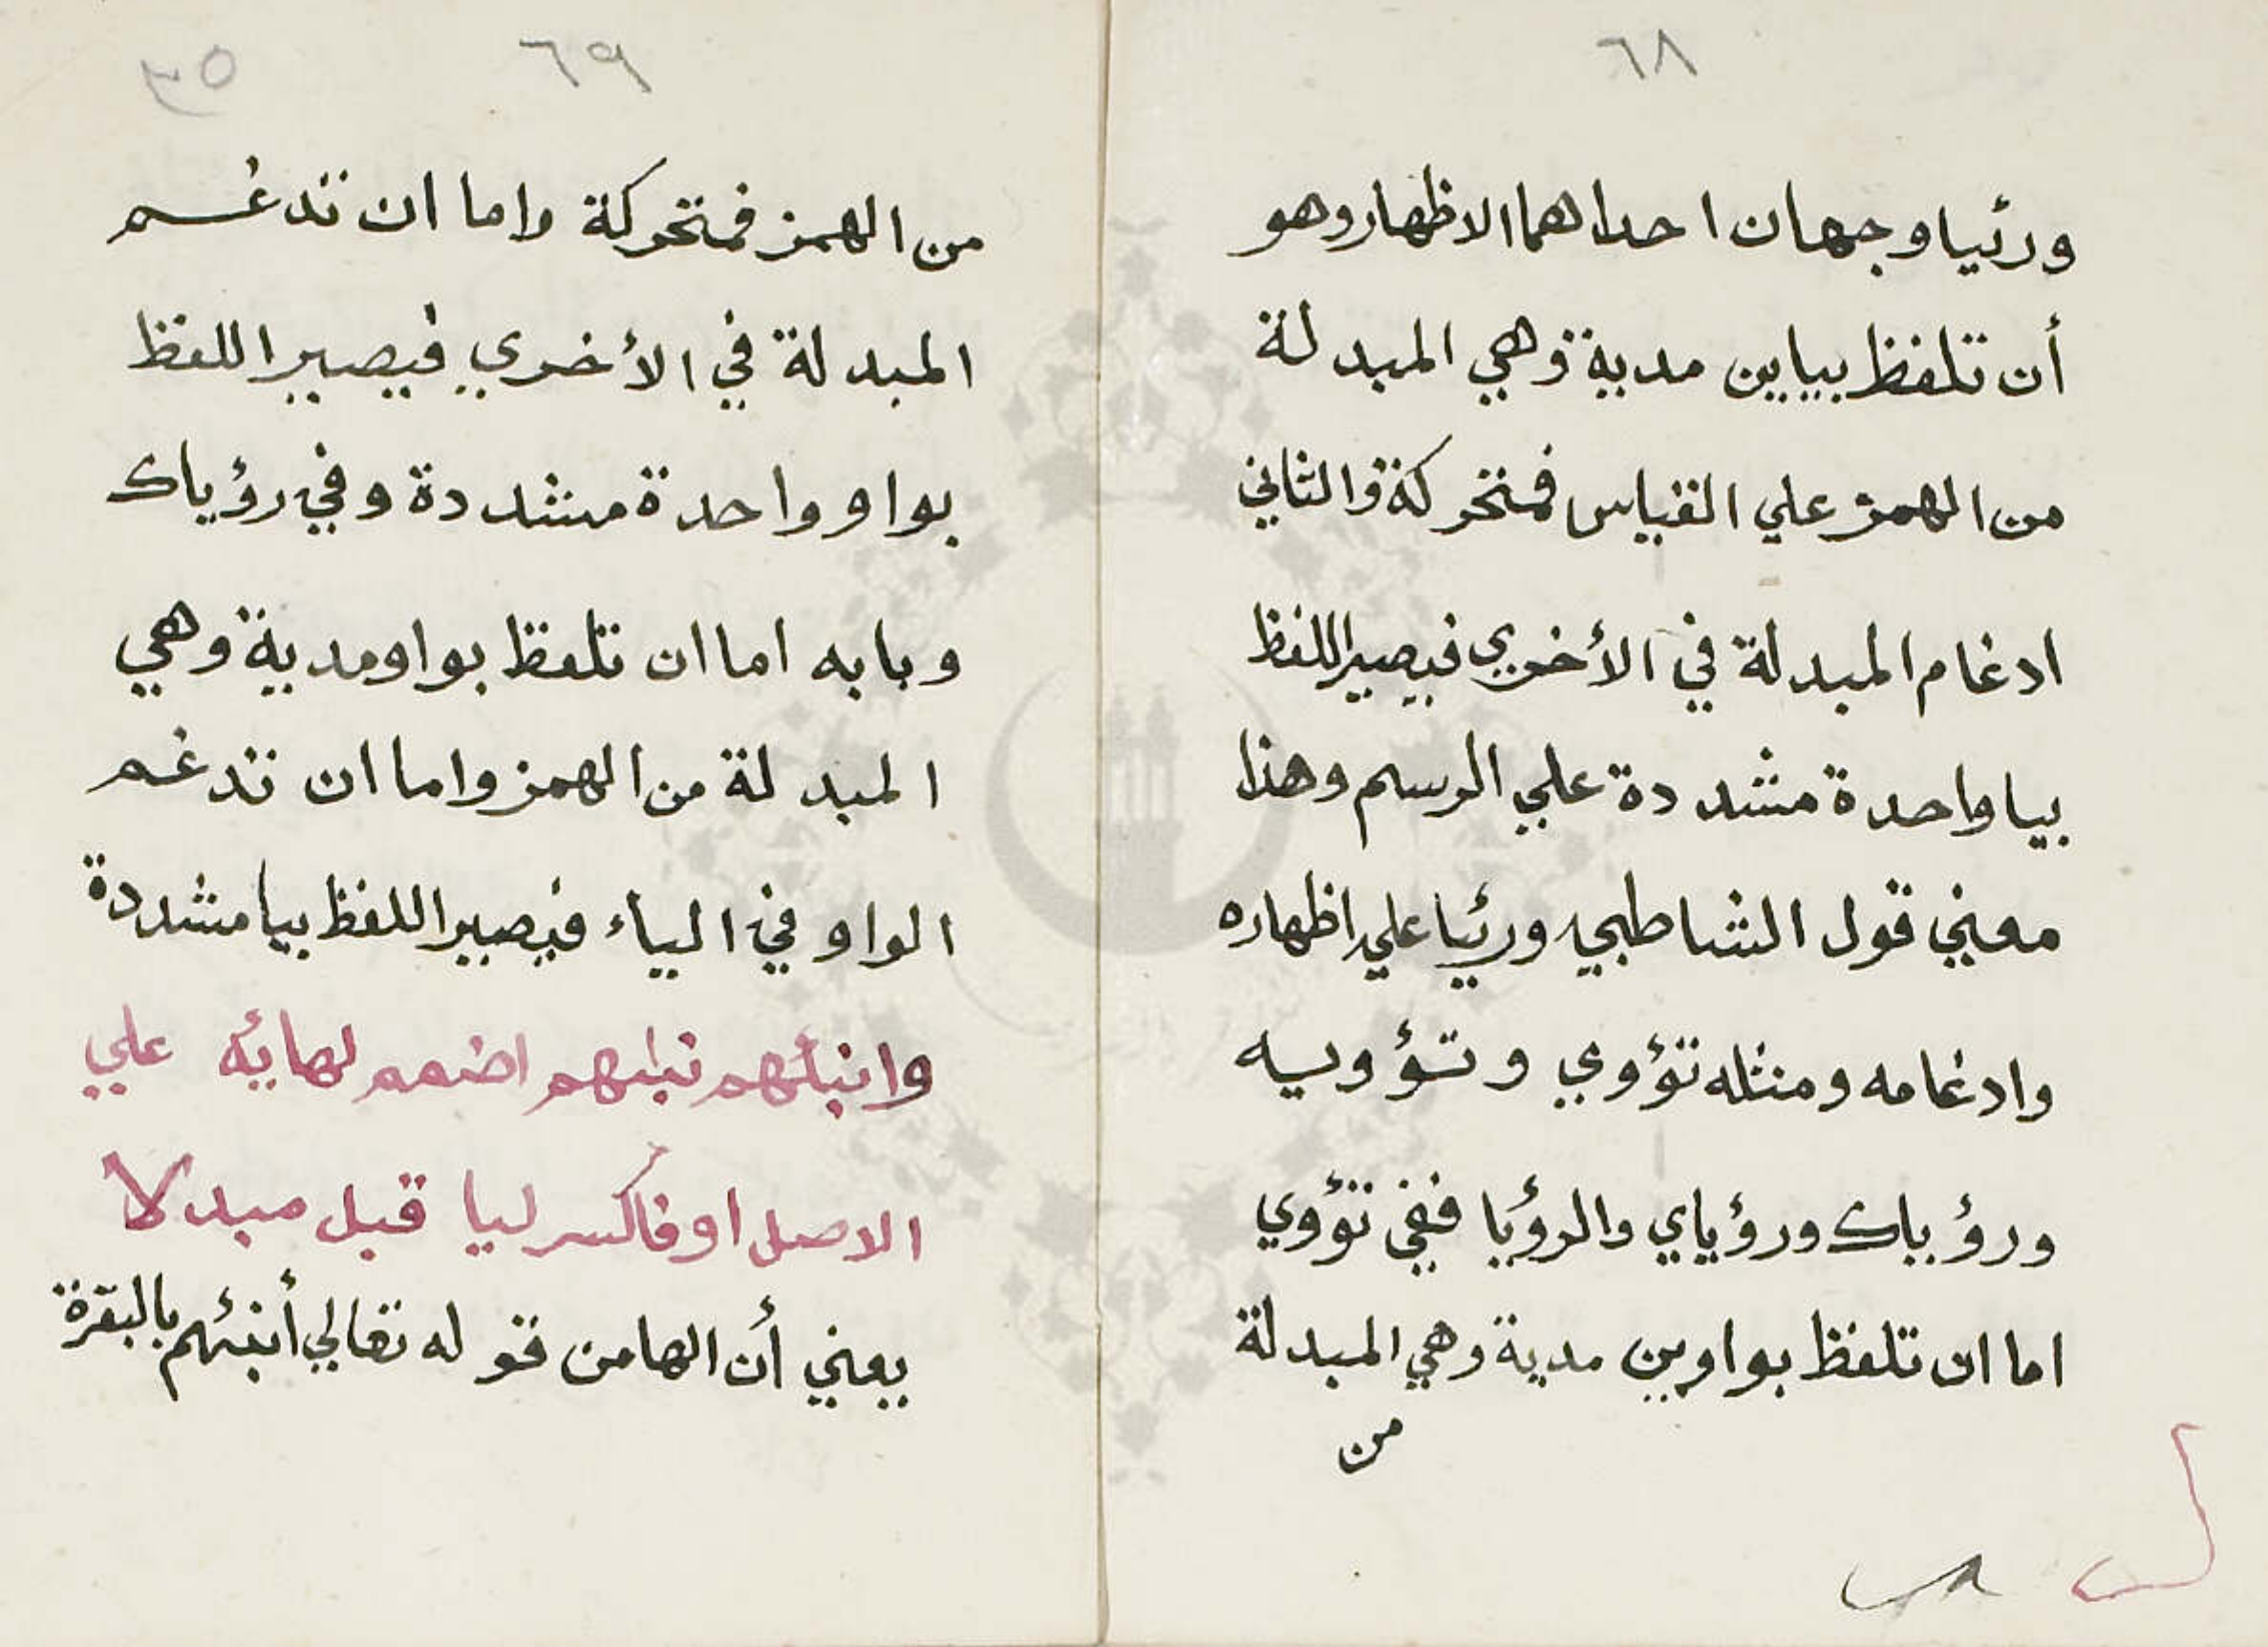 ٦٨
ورئيا وجهان احداهما الاظهار وهو
أن تلفظ بيايين مدية وهي المبدلة
من الهمز علي القياس فمتحركة والثاني
ادغام المبدلة في الأخري فيصير اللفظ
بيا واحدة مشددة علي الرسم وهذا
معني قول الشاطبي ورئيا علي اظهاره
وادغامه ومثله تؤوي وتؤويه
ورؤياك ورؤياي والرؤيا ففي تؤوي
اما ان تلفظ بواوين مدية وهي المبدلة
من
٦٩
٣٥
من الهمز فمتحركة واما ان تدغم
المبدلة في الأخري فيصير اللفظ
بواو واحدة مشددة وفي رؤياك
وبابه اما ان تلفظ بواو مدية وهي
المبدلة من الهمز واما ان تدغم
الواو في الياء فيصير اللفظ بيا مشددة
وانبئهم نبئهم اضمم لهائه علي
الاصل او فاكسر ليا قبل مبدلا
يعني أن الها من قوله تعالي أنبئهم بالبقرة